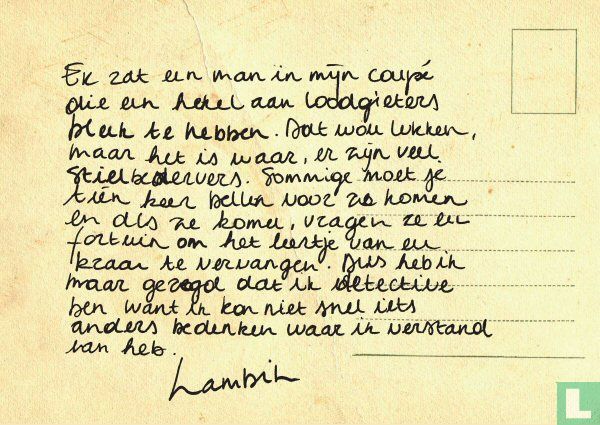 Er zat een man in mijn coupé
die een hekel aan loodgieters
bleek te hebben. Dat wou lukken,
maar het is waar, er zijn veel
stielbedervers. Sommige moet je
tien keer bellen voor ze komen
en als ze komen, vragen ze een
fortuin om het leertje van een
kraan te vervangen. Dus heb ik
maar gezegd dat ik detective
ben want ik kon niet snel iets
anders bedenken waar ik verstand
van heb.
Lambik
L